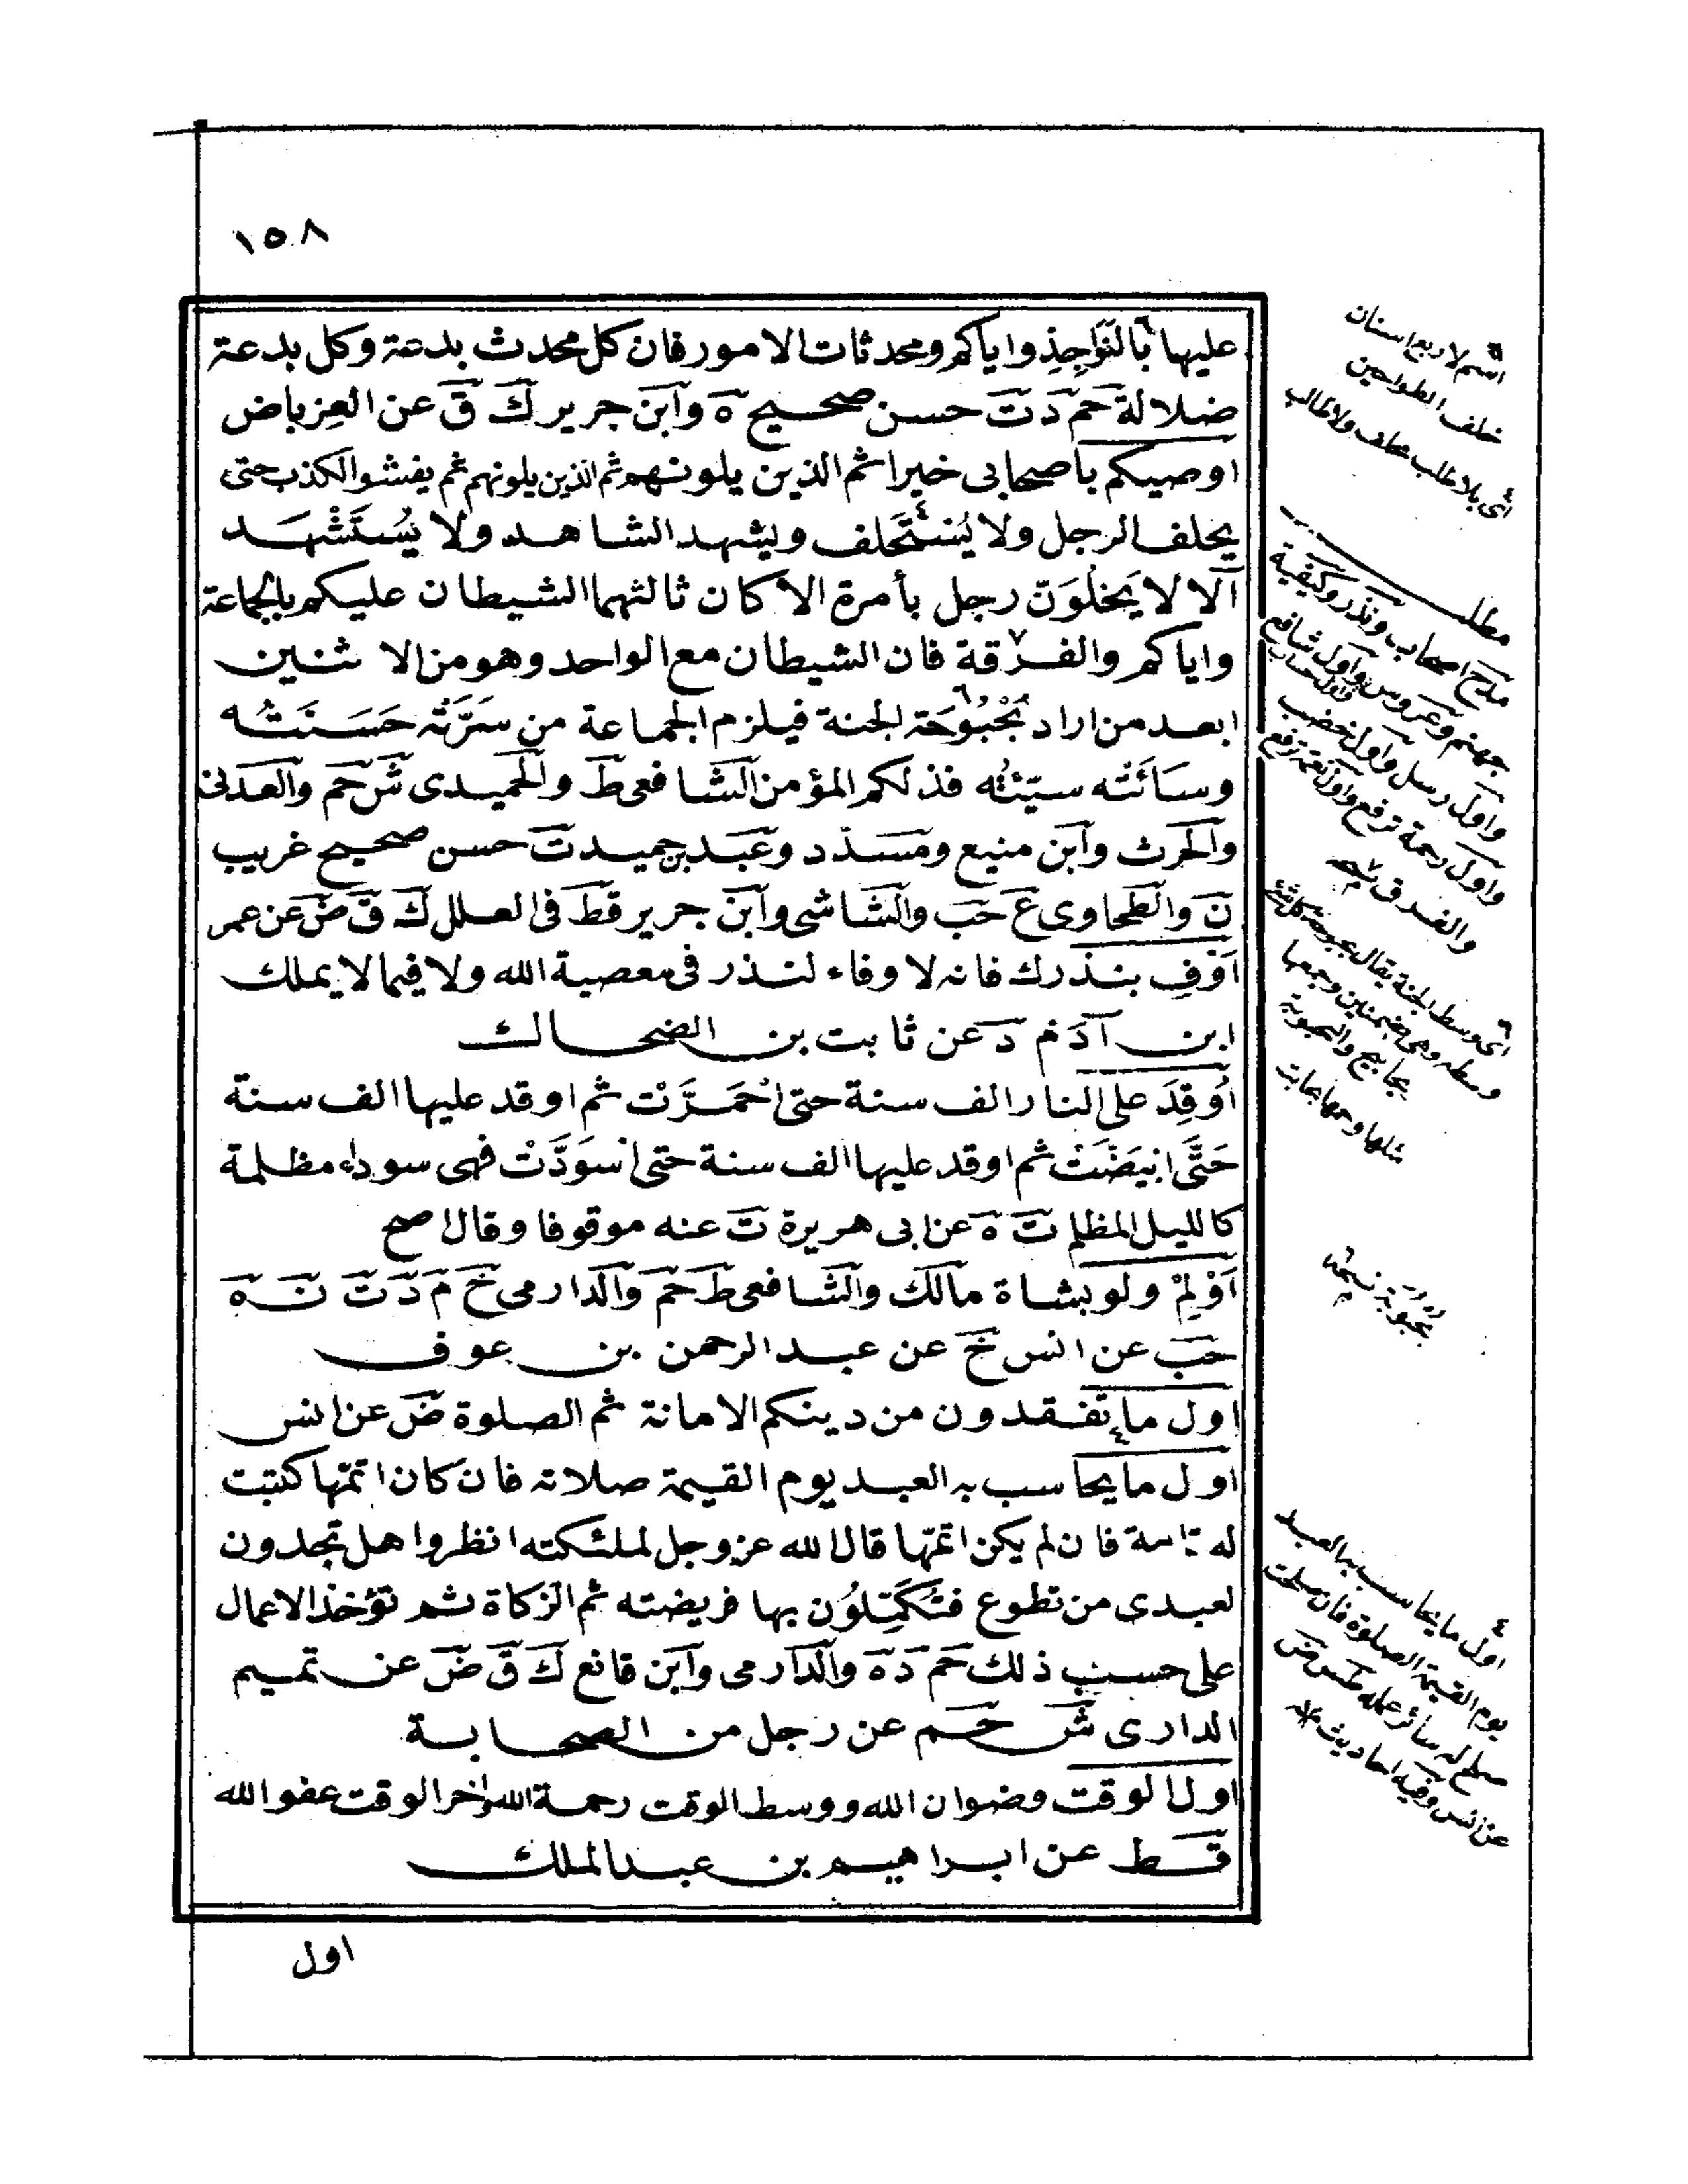 ١٥٨
عليها بالنَّوَاجِذِ واياكم ومحدثات الامور فان كل محدث بدعة وكل بدعة
ضلالة حم د ت حسن صحيح ه وابن جرير ك ق عن العِرباض
اوصيكم باصحابى خيرا ثم الذين يلونهم ثم الذين يلونهم ثم يفشو الكذب حتى
يحلف الرجل ولا يُستَحلف ويشهد الشاهد ولا يُستَشْهَد
اَلا لا يَخلُوَنّ رجل بأمرة الا كان ثالثهما الشيطان عليكم بالجماعة
واياكم والفرقة فان الشيطان مع الواحد وهو من الاثنين
ابعد من اراد بُحْبُوحَة الجنة فيلزم الجماعة من سَرَّتْه حَسَنَتُه
وسَائَتْه سيّئتُه فذلكم المؤمن الشافعى ط والحميدى ش حم والعدنى
والحرث وابن منيع ومسدّد وعبد بن حميد ت حسن صحيح غريب
ن والطحاوى ع حب والشاشى وابن جرير قط فى العلل ك ق ض عن عمر
اَوْفِ بنذرك فانه لا وفاء لنذر فى معصية الله ولا فيما لا يملك
ابن آدم د عن ثابت بن الضحاك
اُوقِدَ على النار الف سنة حتى احْمَرَّتْ ثم اوقد عليها الف سنة
حَتَّى ابيَضّتْ ثم اوقد عليها الف سنة حتى اسوَدَّتْ فهى سوداء مظلمة
كالليل المظلم ت ه عن ابى هريرة ت عنه موقوفا وقال اصح
اَوْلِمْ ولو بشاة مالك والشافعى ط حم والدارمى خ م د ت ن ه
حب عن انس خ عن عبد الرحمن بن عوف
اول ما تفقدون من دينكم الامانة ثم الصلوة ض عن انس
اول ما يحاسب به العبد يوم القيمة صلاته فان كان اتمّها كتبت
له تامة فان لم يكن اتمّها قال الله عز وجل لملئكته انظروا هل تجدون
لعبدى من تطوع فتُكَمِّلُون بها فريضته ثم الزكاة ثم تؤخذ الاعمال
على حسب ذلك حم د ه والدارمى وابن قانع ك ق ض عن تميم
الدارى ش حم عن رجل من الصحابة
اول الوقت رضوان الله ووسط الوقت رحمة الله واخر الوقت عفو الله
قط عن ابراهيم بن عبد الملك
اول
اسم لاربع اسنان
خلف الطواحين
اى بلا طلب حلف ولا طالب
مطلب
مدح اصحاب ونذر وكيفية
جهنم وعروس واول شافع
واول رسل واول خضب
واول رحمة ترفع واول نعمة ترفع
اى وسط الجنة يقال
وسطه وهى بضمتين وجمعها
بُحبُوبَة نسخه
اول ما يحاسب به العبد
يوم القيمة الصلوة فان صلحت
صلح له سائر عمله طس ض
عن انس وفيه احاديث